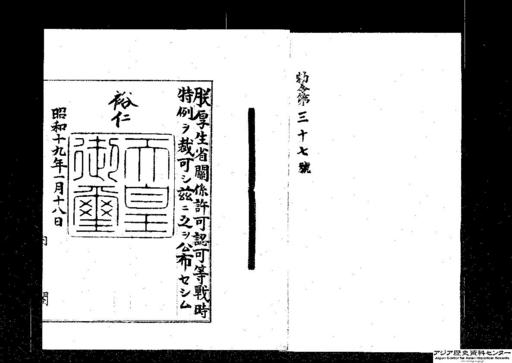 勅令第三十七號
朕厚生省關係許可認可等戰時
特例ヲ裁可シ茲ニ之ヲ公布セシム
裕仁
天皇
御璽
昭和十九年一月十八日
内閣
アジア歴史資料センター
Japan Center for Asian Historical Records